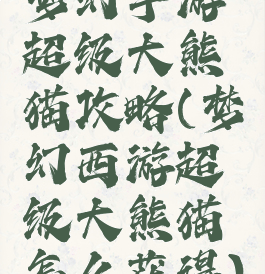 梦幻手游
超级大熊
猫攻略(梦
幻西游超
级大熊猫
怎么获得)